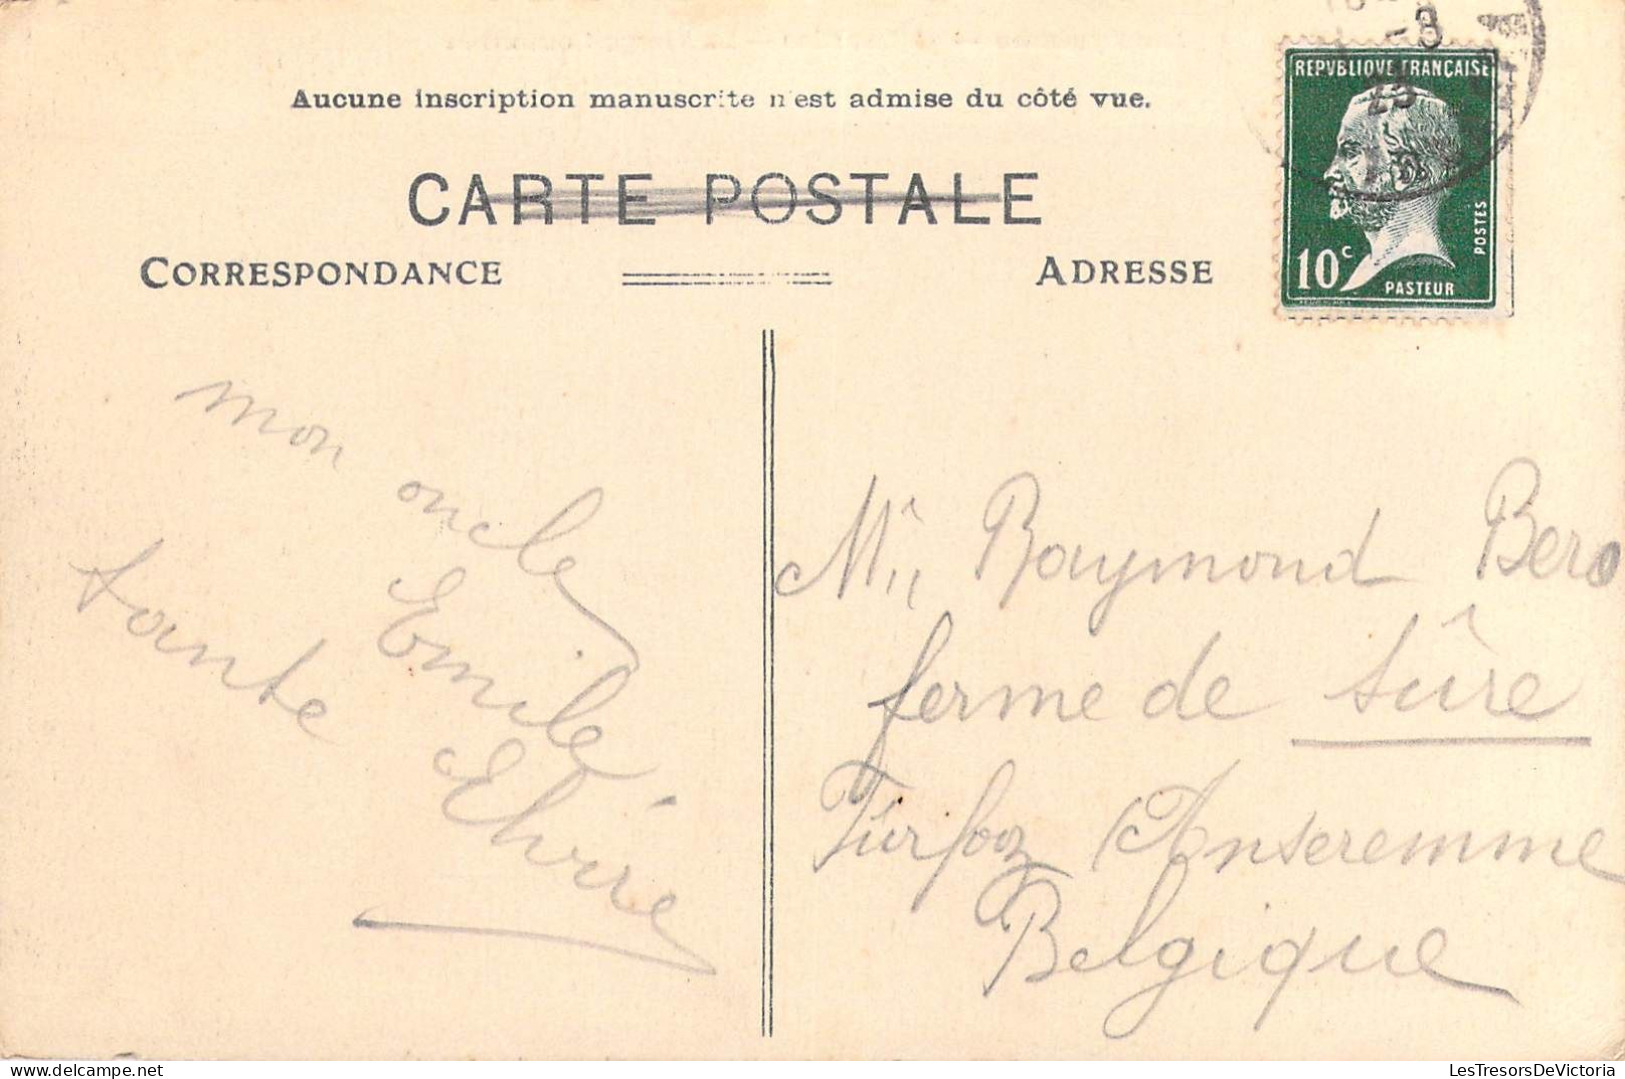 Aucune inscription manuscrite n'est admise du côté vue.
CARTE POSTALE
CORRESPONDANCE
ADRESSE
REPVBLIQVE FRANÇAISE
POSTES
10c
PASTEUR
-8
25
mon oncle
Emile
tante Elvire
Raymond Bero
ferme de Sûre
Furfooz (Anseremme
Belgique
LesTresorsDeVictoria